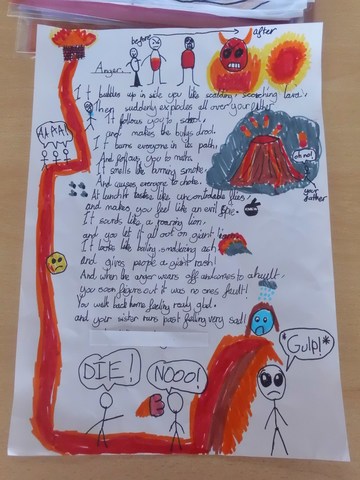 before
after
Anger
It bubbles up in side you like scalding, scorching lava,
Then suddenly explodes all over your father
It follows you to school,
and makes the bullys drool.
It burns everyone in its path,
And follows you to maths.
It smells like burning smoke
And causes everyone to choke.
At lunch it tackles like uncontrolable flies,
and makes you feel like an evil spie.
It sounds like a roaring lion
and you let it all out on giant
It taste like boiling, smoldering ash
And gives people a giant rash!
And when the anger wears off and comes to a hault,
you soon figure out it was no ones fault!
You walk back home feeling realy glad.
and your sister runs past felling very sad!
HA HA!
oh no!
your father
DIE!
NOOO!
*Gulp!*